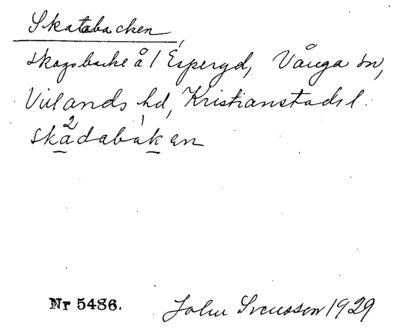 Skatabacken,
skogsbacke å 1 Esperyd, Vånga sn,
Villands hd, Kristianstads l.
skadabakan
Nr 5486. John Svensson 1929